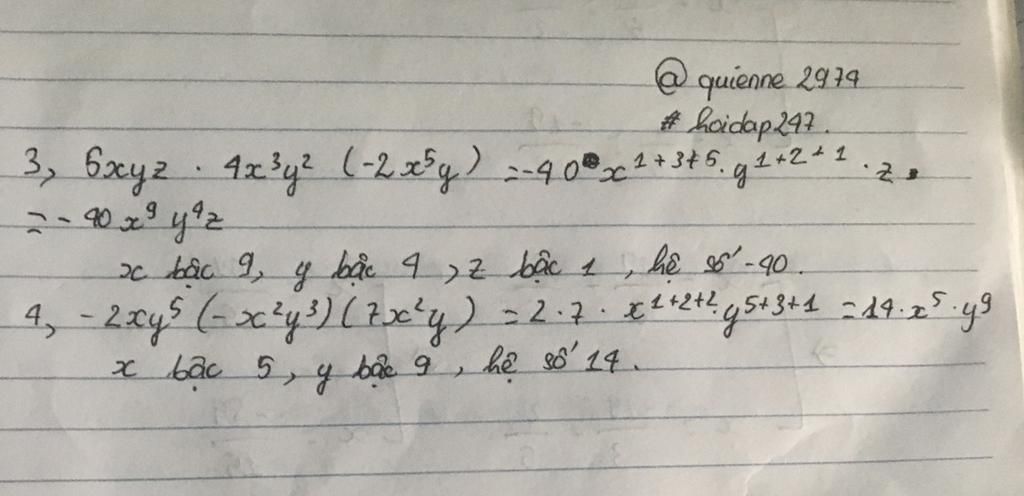 @ quienne 2979
# hoidap247.
3, 5xyz . 4x³y² (-2x⁵y) = -40 x¹⁺³⁺⁵. y¹⁺²⁺¹ . z.
= - 40 x⁹ y⁴z
x bậc 9, y bậc 4, z bậc 1, hệ số -40.
4, - 2xy⁵ (-x²y³)(7x²y) = 2.7. x¹⁺²⁺². y⁵⁺³⁺¹ = 14.x⁵.y⁹
x bậc 5, y bậc 9, hệ số 14.